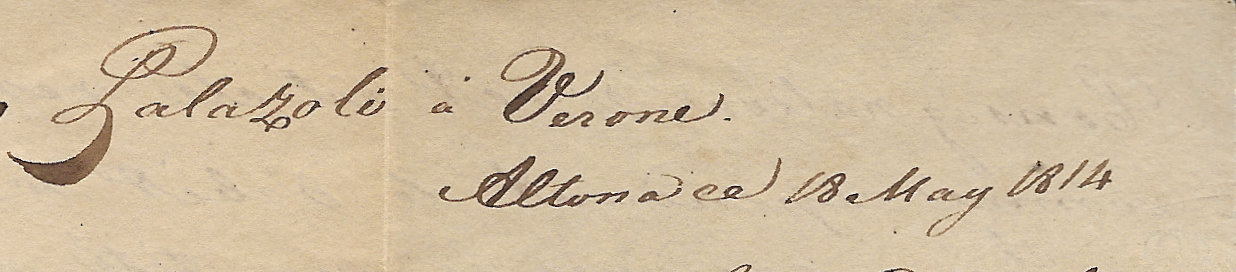 Palazoli à Verone.
Altona ce 18 May 1814